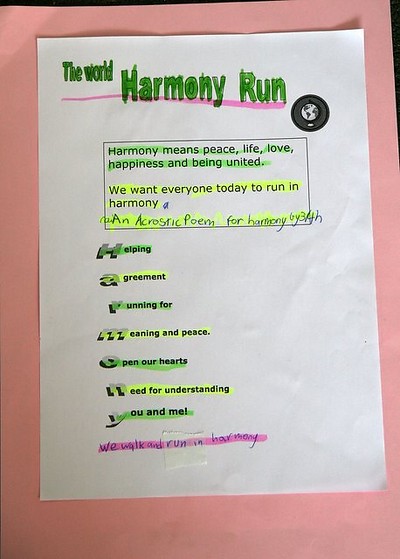 The world Harmony Run
Harmony means peace, life, love,
happiness and being united.
We want everyone today to run in
harmony
An Acrostic Poem for harmony by 3/4h
Helping
agreement
running for
meaning and peace.
open our hearts
need for understanding
you and me!
we walk and run in harmony